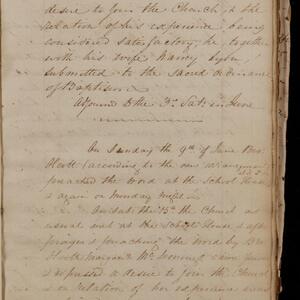 desire to join the Church, & the
relation of his experience being
considered satisfactory, he, together
with his wife Nancy
submitted to the sacred ordinance
of Baptism.
Adjourned to the 3rd Sat. in June
On Sunday the 9th of June Bro.
Hewtt (according to the new arrangement
preached the word at the School House
& again on Monday night
On Sat. the 15th the Church as
usual met at the School House & after
prayer & preaching the word by Bro
expressed a desire to join the Church
& on relation of her experience